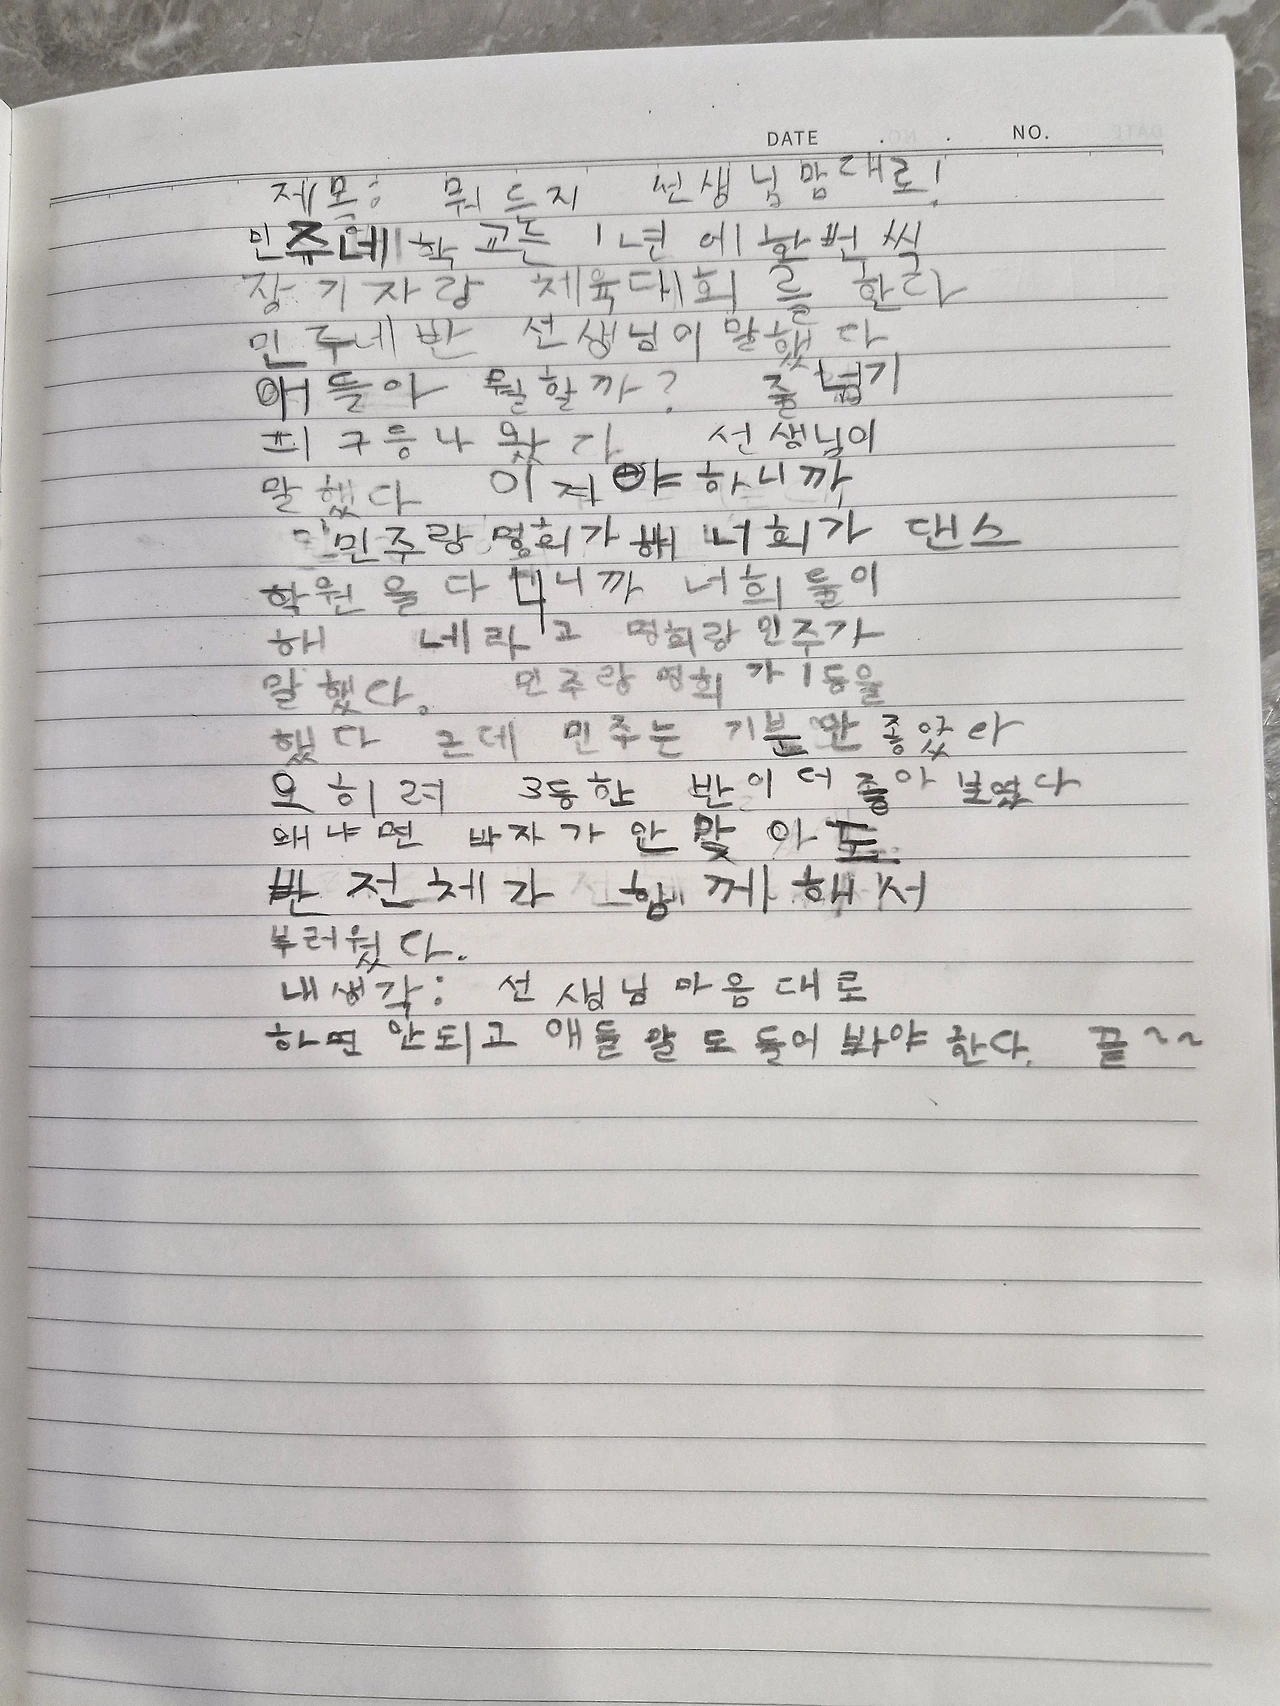 DATE . . NO.
제목: 뭐든지 선생님 맘대로!
민주네 학교는 1년에 한번씩
장기자랑 체육대회를 한다
민주네 반 선생님이 말했다
애들아 뭘할까? 줄넘기
피구등 나왔다 선생님이
말했다 이겨야하니까
민주랑 명희가 해 너희가 댄스
학원을 다니니까 너희 둘이
해 네라고 명희랑 민주가
말했다. 민주랑 명희가 1등을
했다 근데 민주는 기분 안 좋았다
오히려 3등한 반이 더 좋아 보였다
왜냐면 박자가 안 맞아도
반 전체가 함께 해서
부러웠다.
내생각: 선생님 마음대로
하면 안되고 애들 말도 들어 봐야 한다. 끝~~